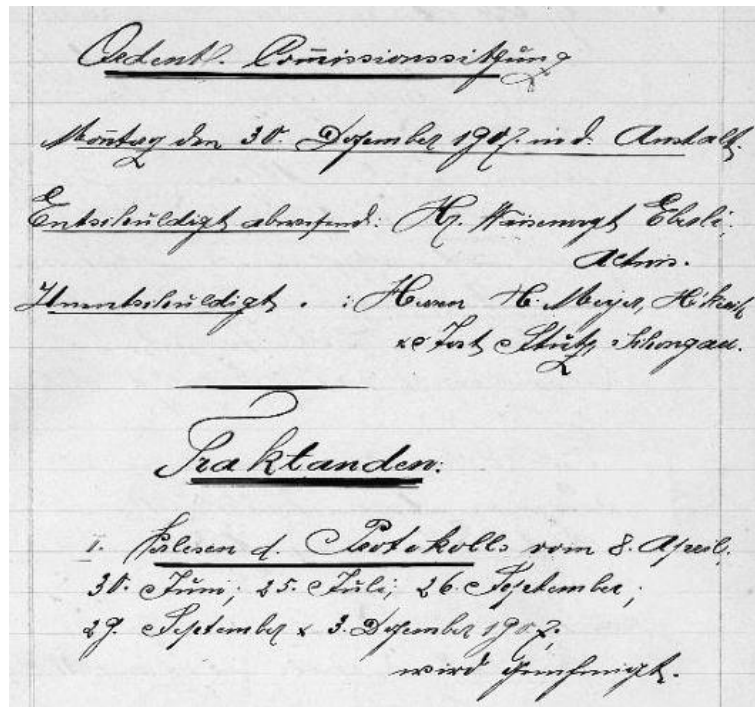 Ordentl. Com̅issionssitzung
Montag den 30. Dezember 1907. in d. Anstalt.
Entschuldigt abwesend: Hr. Waisenvogt Eberli,
Unentschuldigt. : Herren H. Meyer,
& Jost Stutz, Schongau.
Traktanden:
I. Verlesen d. Protokolls vom 8. April,
30. Juni; 25. Juli; 26. September;
29. September & 3. Dezember 1907.
wird genehmigt.